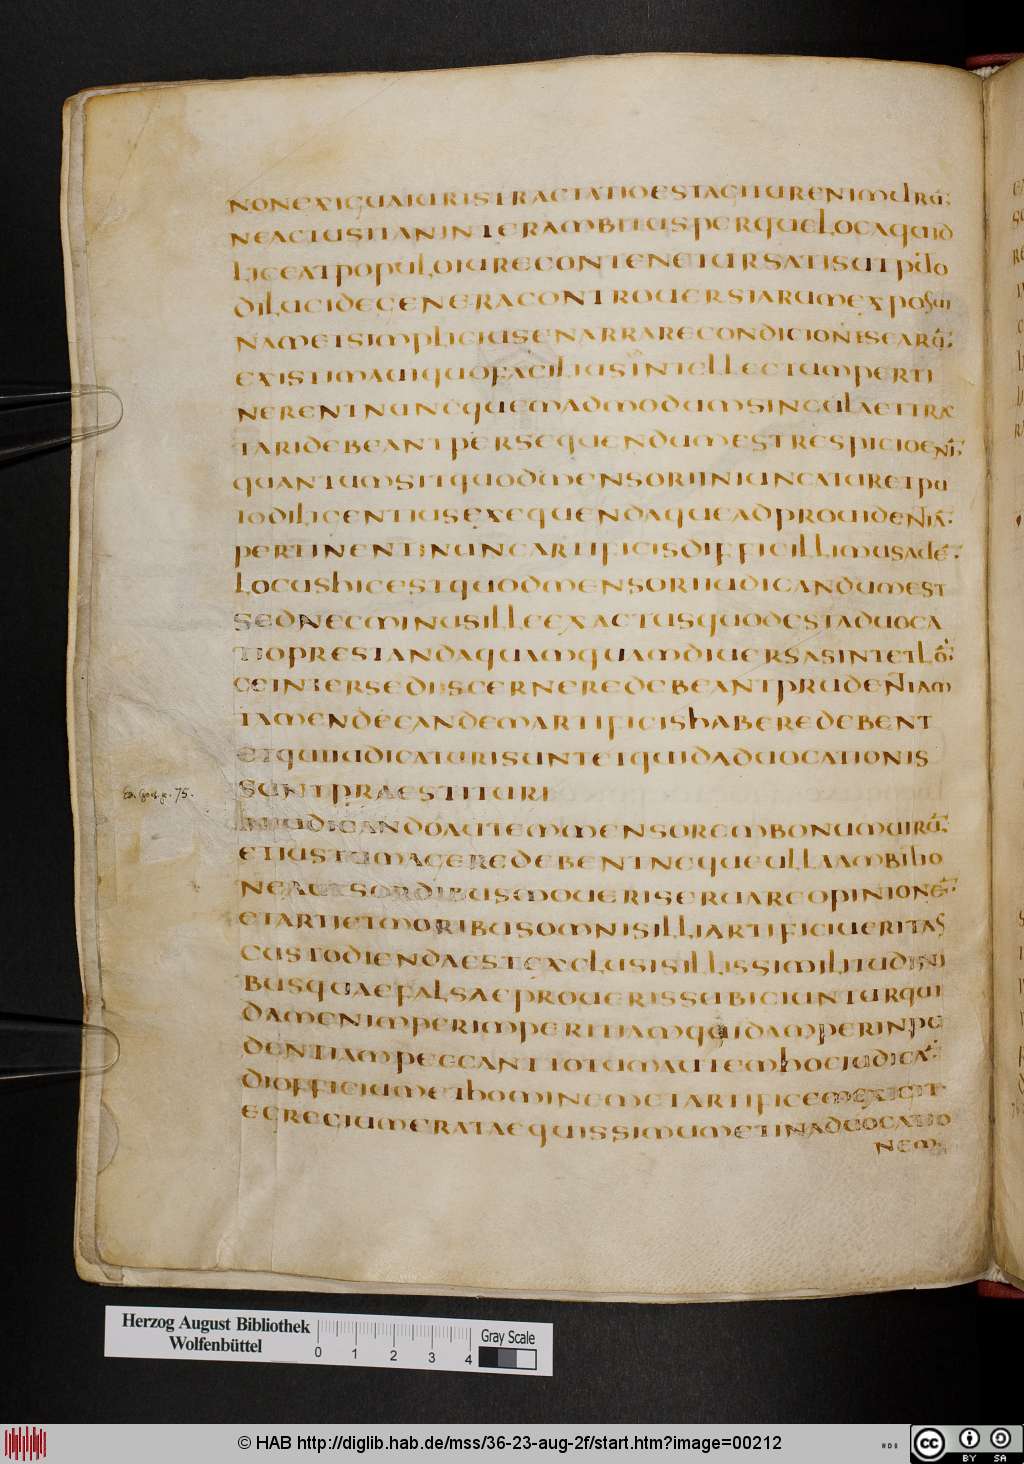 NONEXIGUAIURISTRACTATIOESTAGITURENIMdERA;
NEACTUSITANINTERAMBITUSPERQUELOCAQUID
LICEATPOPULOIURECONTENETURSATISUTPUTO
DILUCIDEGENERACONTROUERSIARUMEXPOSUI
NAMETSIMPLICIUSENARRARECONDICIONESEARU;
EXISTIMAUIQUOFACILIUSINTELLECTUMPERTI
NERENTNUNCQUEMADMODUMSINGULAETTRAC
TARIDEBEANTPERSEQUENDUMESTRESPICIOENI;
QUANTUMSITQUODMENSORIINIUNCXIURETPU
TODILIGENTIUSEXEQUENDAQUEADPROUIDENTIA.
PERTINENTNUNCARTIFICISDIFFICILLIMUSADE.
LOCUSHICESTQUODMENSORIIUDICANDUMEST
SEDNECMINUSILLEEXACTUSQUODESTADUOCA
TIOPRESTANDAQUAMQUAMDIUERSASINTETLO;
CEINTERSEDISCERNEREDEBEANTPRUDENTIAM
TAMENDEGANDEMARTIFICISHABEREDEBENT
ETQUIIUDICATURISUNTETQUIDADUOCATIONIS
SUNTPRAESTITURI
Ed. Goes. p. 75.
INIUDICANDOAUTEMMENSOREMBONUMUIRU;
ETIUSTUMAGEREDEBENTNEQUEULLAAMBITIO
NEAUTSORDIBUSMOUERISERUAREOPINIONE;
ETARTIETMORIBUSOMNISILLIARTIFICIUERITAS
CUSTODIENDAESTEXCLUSISILLISSIMILITUDINI
BUSQUAEFALSAEPROUERISSUBICIUNTURQUI
DAMENIMPERIMPERITIAMQUIDAMPERINPU
DENTIAMPECCANTTOTUMAUTEMHOCIUDICA;
DIOFFICIUMETHOMINEMETARTIFICEMEXIGIT
EGREGIUMERATAEQUISSIMUMETINADUOCATIO
NEM;
Herzog August Bibliothek
Wolfenbüttel
0 1 2 3 4
Gray Scale
© HAB http://diglib.hab.de/mss/36-23-aug-2f/start.htm?image=00212
CC BY SA